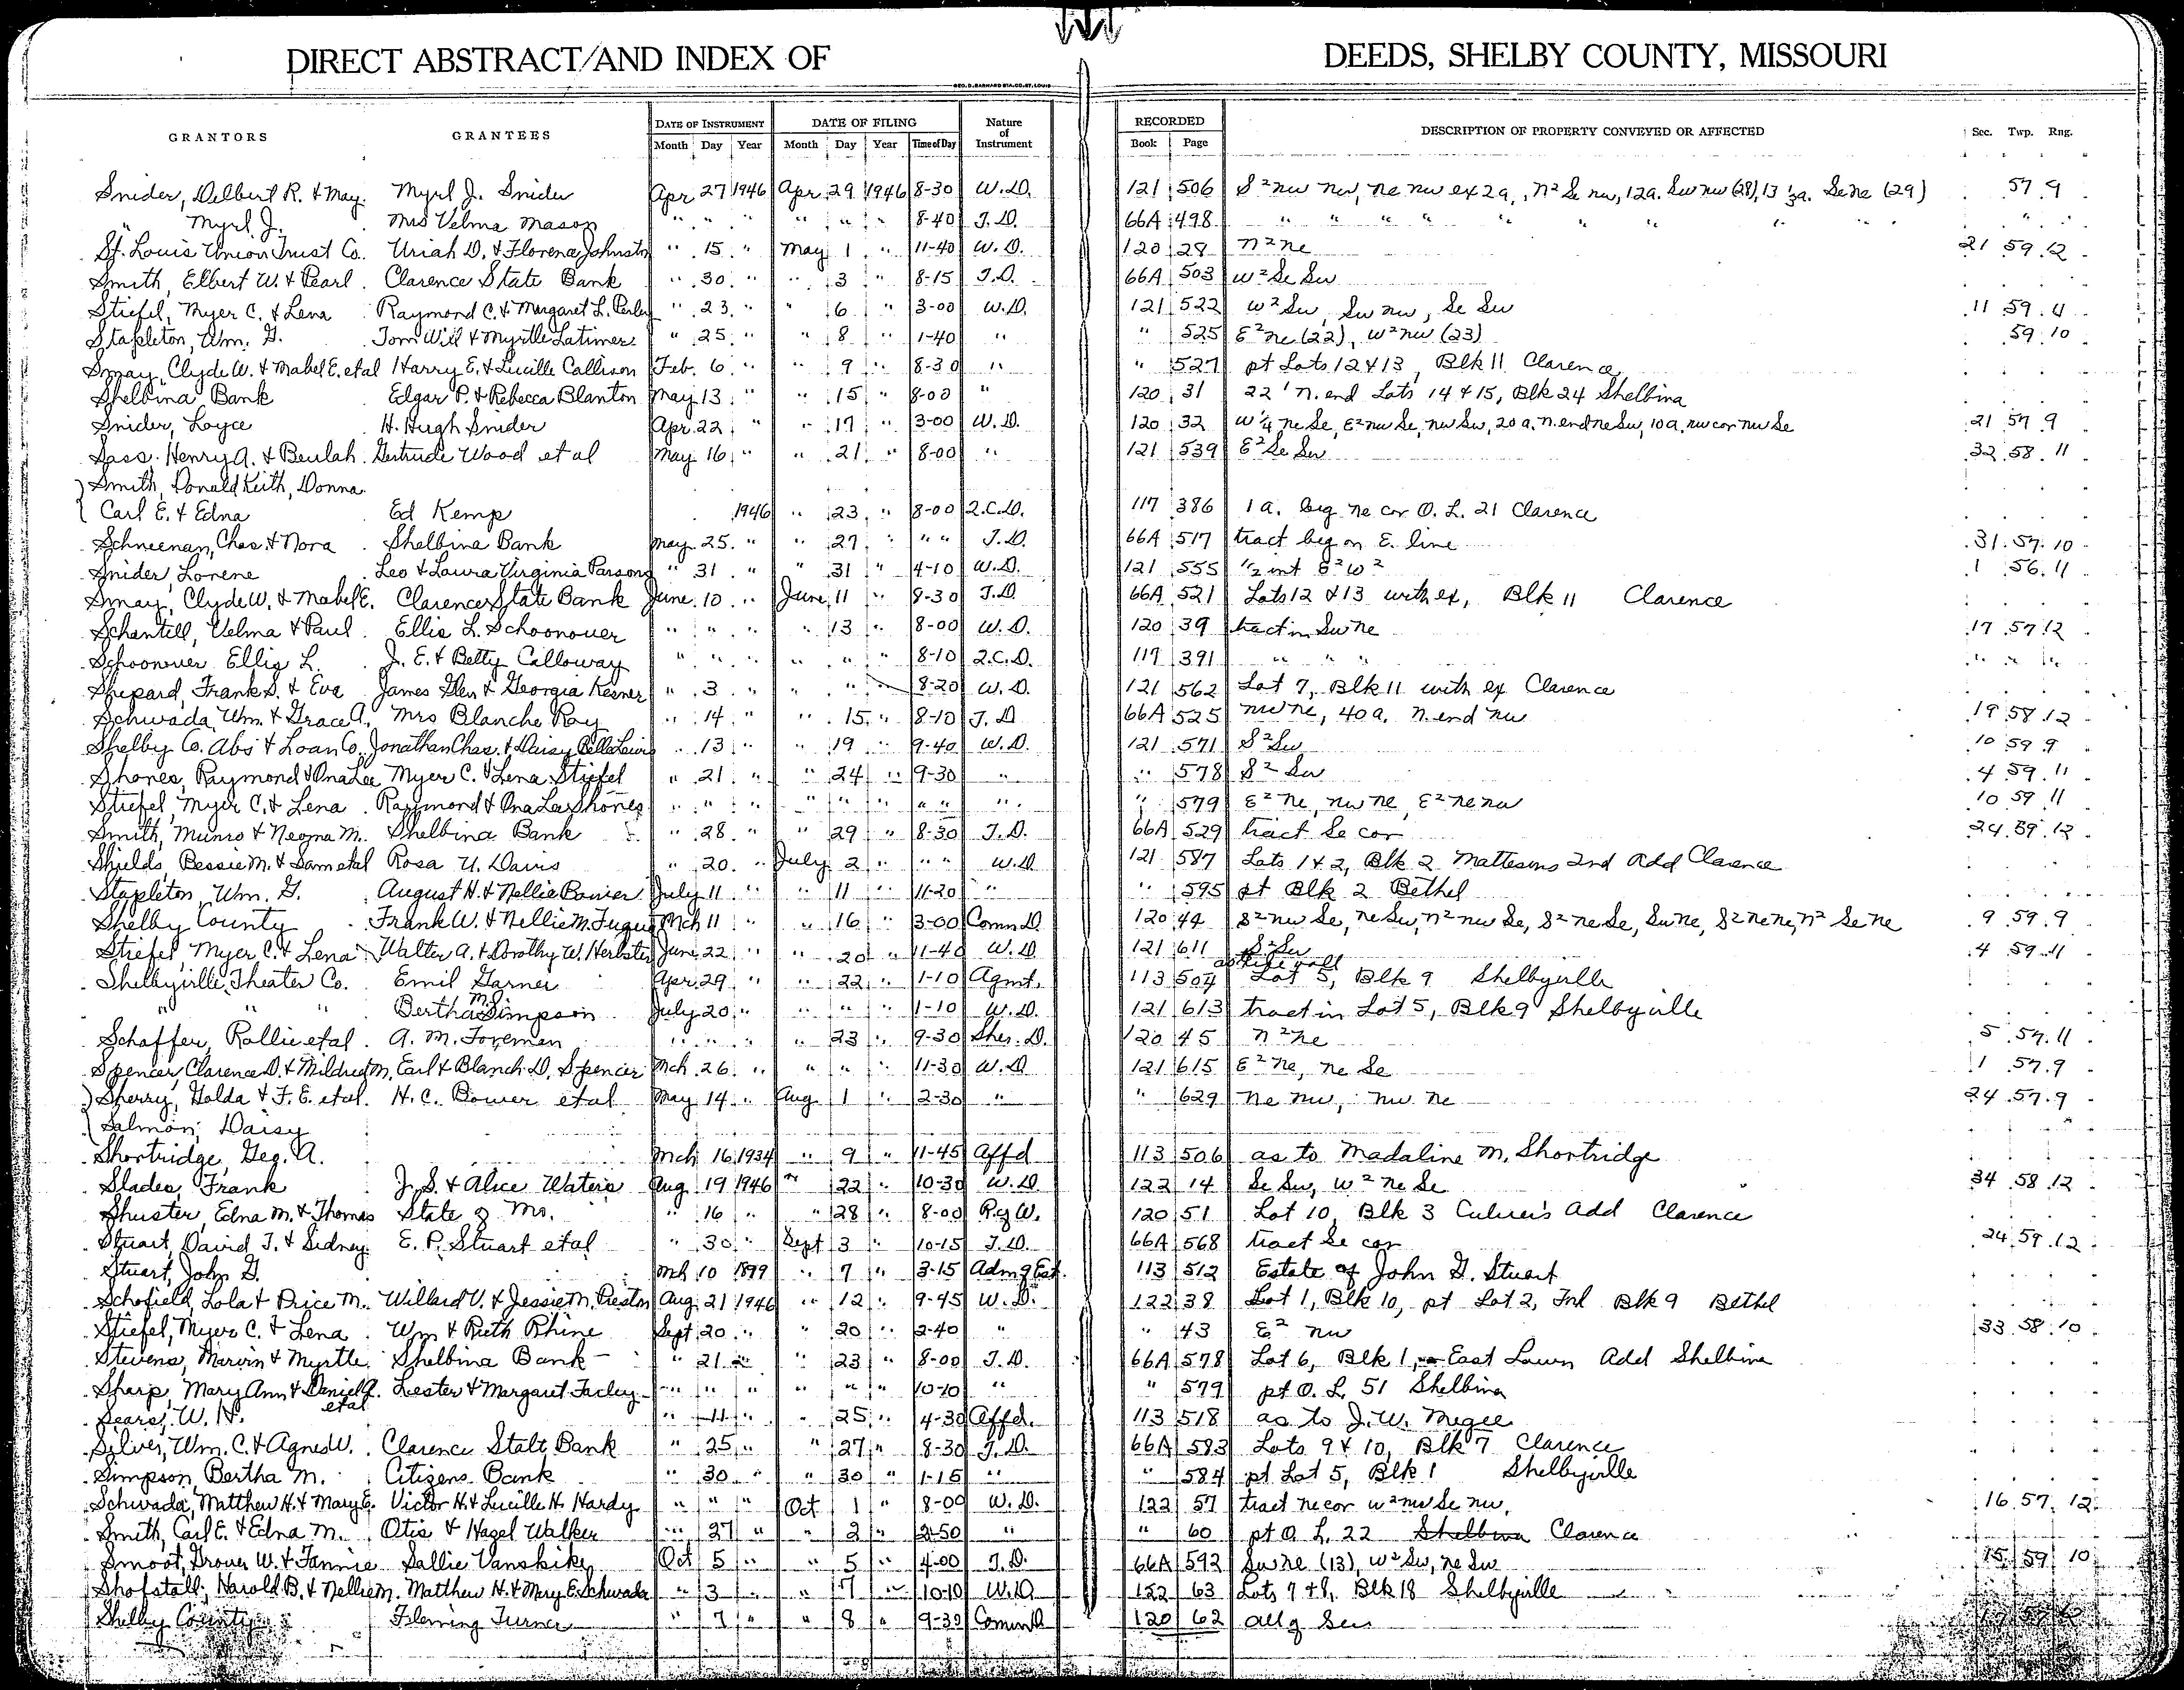 DIRECT ABSTRACT/AND INDEX OF DEEDS, SHELBY COUNTY, MISSOURI
GEO. D. BARNARD STA. CO. ST. LOUIS
GRANTORS GRANTEES DATE OF INSTRUMENT DATE OF FILING Nature of Instrument RECORDED DESCRIPTION OF PROPERTY CONVEYED OR AFFECTED Sec. Twp. Rng.
Month Day Year Month Day Year Time of Day Book Page
Snider, Delbert R. & May. Myrl J. Snider Apr 27 1946 Apr 29 1946 8-30 W.D. 121 506 S²nw nw, ne nw ex 2a, n² Se nw, 12a. Sw nw (28), 13 ⅓a. Se ne (29) 57 9
" Myrl J. Mrs Velma Mason " " " " " " 8-40 T.D. 66A 498 " " " " " " " " " " "
St. Louis Union Trust Co. Uriah D. & Florena Johnston " 15 " May 1 " 11-40 W.D. 120 28 n²ne 21 59 12
Smith, Elbert W. & Pearl Clarence State Bank " 30 " " 3 " 8-15 T.D. 66A 503 w² Se Sw
Stiefel, Myer C. & Lena Raymond C. & Margaret L. " 23 " " 6 " 3-00 W.D. 121 522 w² Sw, Sw nw, Se Sw 11 59
Stapleton, Wm. G. Tom Will & Myrtle Latimer " 25 " " 8 " 1-40 " " 525 E² ne (22), w² nw (23) 59 10
Smay, Clyde W. & Mabel E. etal Harry E. & Lucille Callison Feb. 6 " " 9 " 8-30 " " 527 pt Lots 12 & 13, Blk 11 Clarence
Shelbina Bank Edgar P. & Rebecca Blanton May 13 " " 15 " 8-00 " 120 31 22' n. end Lots 14 & 15, Blk 24 Shelbina
Snider, Loyce H. Hugh Snider Apr. 22 " " 17 " 3-00 W.D. 120 32 W¼ ne Se, E² nw Se, nw Sw, 20 a. n. end ne Sw, 10 a. nw cor nw Se 21 57 9
Sass, Henry A. & Beulah Gertrude Wood et al May 16 " " 21 " 8-00 " 121 539 E² Se Sw 32 58 11
Smith, Donald Keith, Donna
Carl E. & Edna Ed Kemp 1946 " 23 " 8-00 Q.C.D. 117 386 1 a. beg ne cor O. L. 21 Clarence
Schneenan, Chas. & Nora Shelbina Bank May 25 " " 27 " " " T.D. 66A 517 tract beg on E. line 31 57 10
Snider, Lorene Leo & Laura Virginia Parsons " 31 " " 31 " 4-10 W.D. 121 555 ½ int E² W² 1 56 11
Smay, Clyde W. & Mabel E. Clarence State Bank June 10 " June 11 " 8-30 T.D. 66A 521 Lots 12 & 13 with ex, Blk 11 Clarence
Schantell, Velma & Paul Ellis L. Schoonover " " " " 13 " 8-00 W.D. 120 39 tract in Sw ne 17 57 12
Schoonover Ellis L. J. E. & Betty Calloway " " " " " " 8-10 Q.C.D. 117 391 " " " " " "
Shepard, Frank S. & Eva James Glen & Georgia Kesner " 3 " " " 8-20 W.D. 121 562 Lot 7, Blk 11 with ex Clarence
Schwada, Wm. & Grace A. Mrs Blanche Ray " 14 " " 15 " 8-10 T.D 66A 525 nw ne, 40 a. n. end nw 19 58 12
Shelby Co. Abs & Loan Co. Jonathan Chas. & Daisy Belle Lewis " 13 " " 19 " 9-40 W.D. 121 571 S² Sw 10 59 9
Shores, Raymond & Ona Lee Myer C. & Lena Stiefel " 21 " " 24 " 9-30 " " 578 S² Sw 4 59 11
Stiefel, Myer C. & Lena Raymond & Ona Lee Shores " " " " " " " " " " 579 E² ne, nw ne, E² ne nw 10 59 11
Smith, Munro & Neoma M. Shelbina Bank " 28 " " 29 " 8-30 T.D. 66A 529 tract Se cor 24 59 12
Shields, Bessie M. & Sam etal Rosa U. Davis " 20 " July 2 " " " W.D 121 587 Lots 1 & 2, Blk 2 Mattesons 2nd Add Clarence
Stapleton, Wm. G. August H. & Nellie Bower July 11 " " 11 " 11-20 " " 595 pt Blk 2 Bethel
Shelby County Frank W. & Nellie M. Fuqua Mch 11 " " 16 " 3-00 Comm D. 120 44 S² nw Se, ne Sw, n² nw Se, S² ne Se, Sw ne, S² ne ne, n² Se ne 9 59 9
Stiefel Myer C. & Lena Walter A. & Dorothy W. Herbster June 22 " " 20 " 11-40 W.D 121 611 S² Sw 4 59 11
Shelbyville Theater Co. Emil Garner Apr. 29 " " 22 " 1-10 Agmt. 113 504 as to wall Lot 5, Blk 9 Shelbyville
" " " Bertha M. Simpson July 20 " " " " 1-10 W.D. 121 613 tract in Lot 5, Blk 9 Shelbyville
Schaffer, Rollie etal. A. M. Foreman " " " " 23 " 9-30 Sher. D. 120 45 n² ne 5 57 11
Spencer, Clarence D. & Mildred M. Earl & Blanch D. Spencer Mch. 26 " " " " 11-30 W.D 121 615 E² ne, ne Se 1 57 9
Sherry, Golda & F. E. etal. H. C. Bower etal May 14 " Aug 1 " 2-30 " " 629 ne nw, nw ne 24 57 9
Salmon, Daisy
Shortridge, Geo. A. Mch 16 1934 " 9 " 11-45 Affd 113 506 as to Madaline M. Shortridge
Slader, Frank J. S. & Alice Waters Aug 19 1946 " 22 " 10-30 W.D. 122 14 Se Sw, w² ne Se 34 58 12
Shuster, Edna M. & Thomas State of Mo. " 16 " " 28 " 8-00 R of W. 120 51 Lot 10, Blk 3 Culver's Add Clarence
Stuart, David T. & Sidney E. P. Stuart etal " 30 " Sept 3 " 10-15 T.D. 66A 568 tract Se cor 24 59 12
Stuart, John G. Mch 10 1899 " 7 " 3-15 Adm of Est. 113 512 Estate of John G. Stuart
Schofield, Lola & Price M. Willard V. & Jessie M. Preston Aug 21 1946 " 12 " 9-45 W.D. 122 38 Lot 1, Blk 10, pt Lot 2, Frl Blk 9 Bethel
Stiefel, Myer C. & Lena Wm & Ruth Rhine Sept 20 " " 20 " 2-40 " " 43 E² nw 33 58 10
Stevens, Marvin & Myrtle Shelbina Bank " 21 " " 23 " 8-00 T.D. 66A 578 Lot 6, Blk 1, East Lawn Add Shelbina
Sharp, Mary Ann & Daniel A. etal Lester & Margaret Farley " " " " " " 10-10 " " 579 pt O. L. 51 Shelbina
Sears, W. H. " 11 " " 25 " 4-30 Affd. 113 518 as to J. W. Megee
Silver, Wm. C. & Agnes W. Clarence State Bank " 25 " " 27 " 8-30 T.D. 66A 583 Lots 9 & 10, Blk 7 Clarence
Simpson, Bertha M. Citizens Bank " 30 " " 30 " 1-15 " " 584 pt Lot 5, Blk 1 Shelbyville
Schwada, Matthew H. & Mary E. Victor H. & Lucille H. Hardy " " " Oct 1 " 8-00 W.D. 122 57 tract ne cor w² nw Se nw 16 57 12
Smith, Carl E. & Edna M. Otis & Hazel Walker " 27 " " 2 " 2-50 " " 60 pt O. L. 22 Shelbina Clarence
Smoot, Grover W. & Fannie Sallie Vanskike Oct 5 " " 5 " 4-00 T.D. 66A 592 Sw ne (13), w² Sw, ne Sw 15 59 10
Shofstall, Harold B. & Nellie M. Matthew H. & Mary E. Schwada " 3 " " 7 " 10-10 W.D 122 63 Lots 7 & 8, Blk 18 Shelbyville
Shelby County Fleming Turner " 7 " " 8 " 9-30 Comm D 120 62 all of Sec